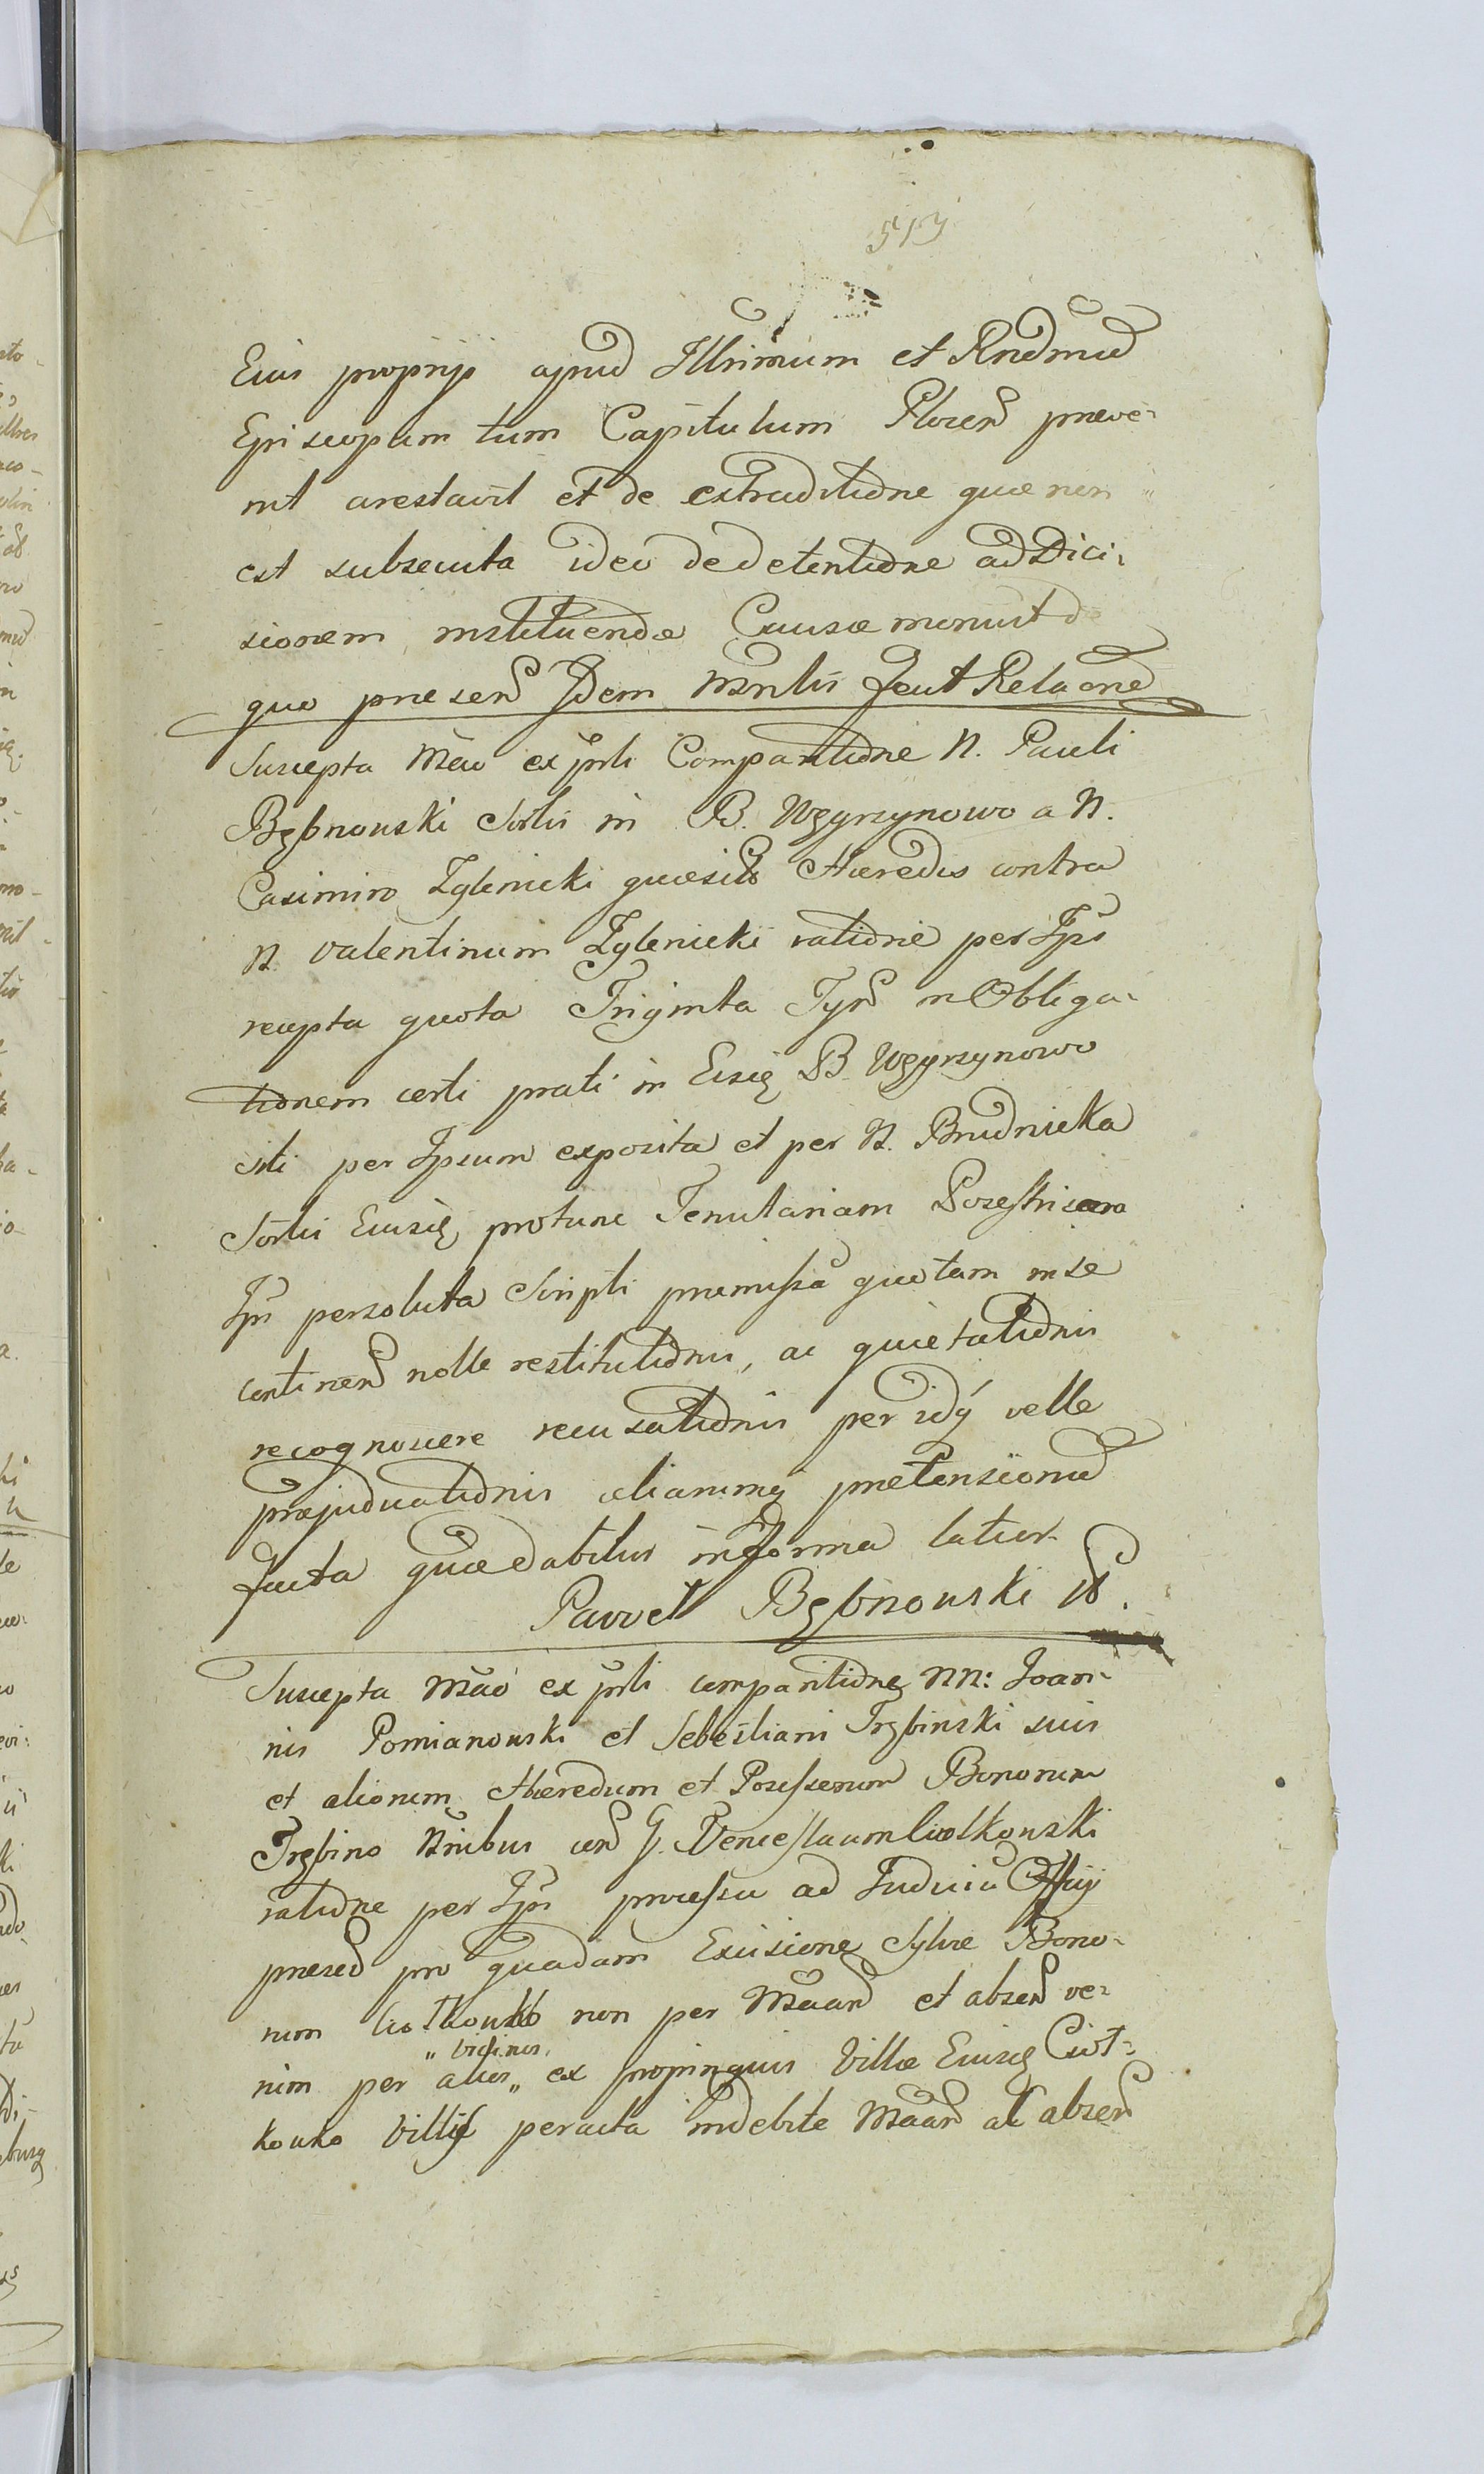 513
Eius proprys apud Illrimum et Rndmũ
Episcopum tum Capitulum Plocen̄ praeve-
nit arestavit et de extraditione quae non
est subsecuta ideo de detentione ad Dici-
sionem instituendae Causae monuit de
quo praesen̄ Idem Mntlis fecit Relaonẽ
Suscepta Mãõ ex prlı Comparitione N. Pauli
Bębnowski Sortis in B. Węgrzynowo a N.
Casimiro Zglenicki quaesitae Haeredis contra
N. Valentinum Zglenicki ratione per Ips̃
recepta quota Triginta Tyn̄ in Obliga-
tionem certi prati in Eisq̨ B. Węgrzynowo
siti per Ipsum exposita et per N. Brudnicka
Sortis Eiusq̨ protunc Tenutariam Possestricem
Ipi persoluta Scripti praemissã quotam in se
continen̄ nolle restitutionis, ac quietationis
recognoscere recusationis per idq́ velle
praejudicationis aliarumq̨ praetensionũ
facta quae dabitur in forma latior
Paweł Bębnowski N.
Suscepta Mãõ ex prlı comparitione NN: Joan-
nis Pomianowski et Sebestiani Trębinski suis
et aliorum Haeredum et Possessorum Bonorum
Trębino Nnibus con̄ G. Venceslaum Ciołkowski
ratione per Ips̃ processu ad Judiciũ Offıcij
praesen̄ pro quadam Excisione Sylvae Bono-
rum Ciołkowo non per Mãan̄ et absen̄ ve-
rum per alios „vicinos„ ex propinquis Villae Eiusq̨ Cioł-
kowo Villis peracta indebite Mãan̄ ac absen̄